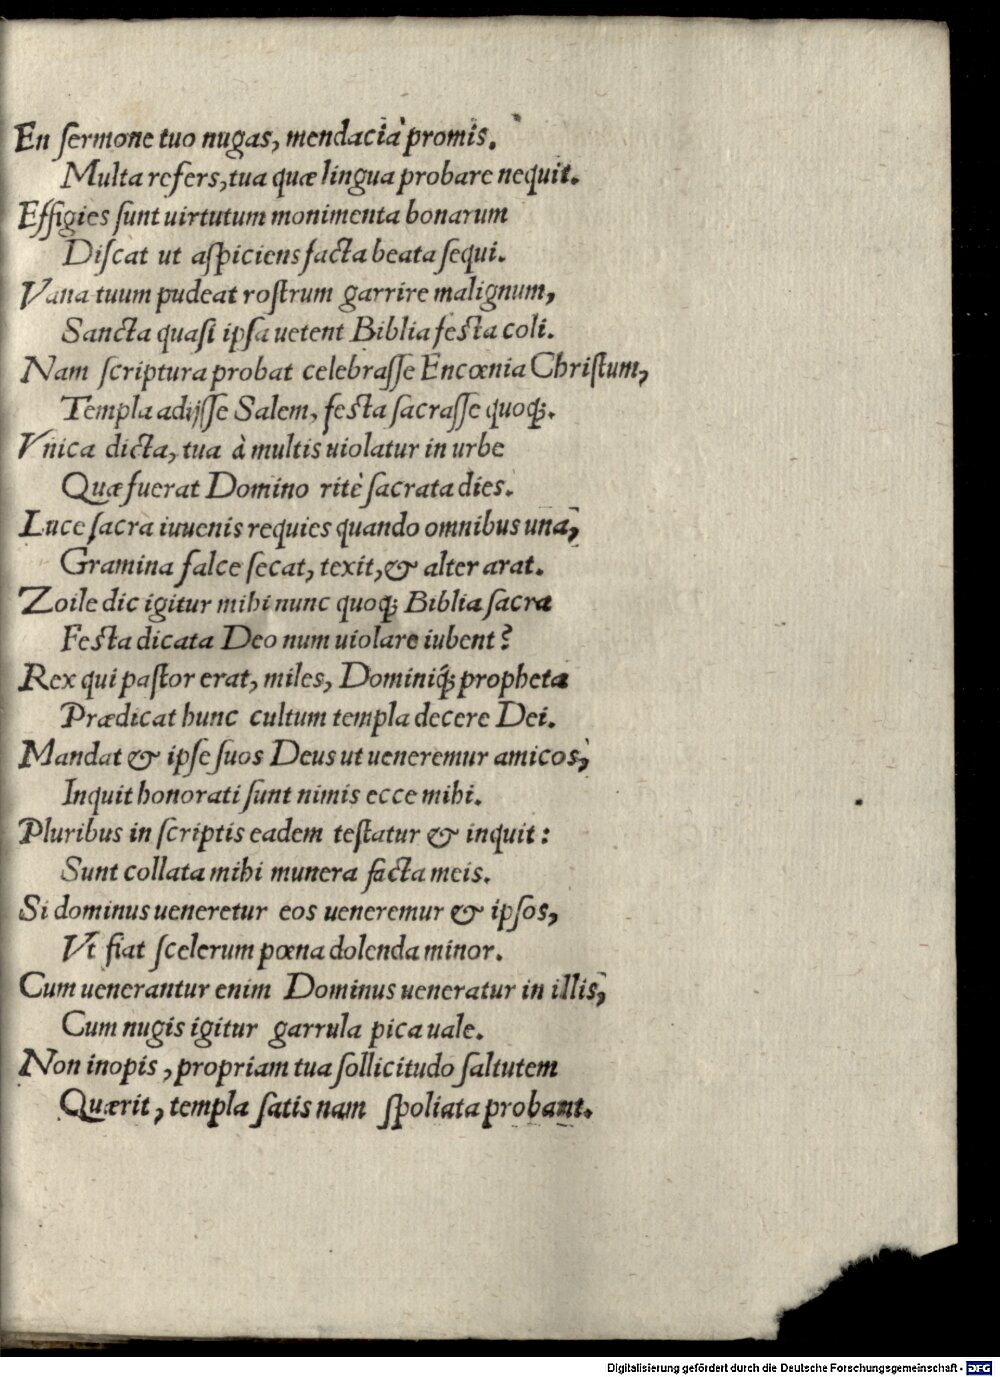 En ſermone tuo nugas, mendacia promis.
Multa refers, tua quæ lingua probare nequit.
Effigies ſunt uirtutum monimenta bonarum
Diſcat ut aſpiciens facta beata ſequi.
Vana tuum pudeat roſtrum garrire malignum,
Sancta quaſi ipſa uetent Biblia feſta coli.
Nam ſcriptura probat celebraſſe Encœnia Chriſtum,
Templa adijſſe Salem, feſta ſacraſſe quoq;.
Vnica dicta, tua à multis uiolatur in urbe
Quæ fuerat Domino ritè ſacrata dies.
Luce ſacra iuuenis requies quando omnibus una,
Gramina falce ſecat, texit, & alter arat.
Zoile dic igitur mihi nunc quoq; Biblia ſacra
Feſta dicata Deo num uiolare iubent?
Rex qui paſtor erat, miles, Dominiq́; propheta
Prædicat hunc cultum templa decere Dei.
Mandat & ipſe ſuos Deus ut ueneremur amicos,
Inquit honorati ſunt nimis ecce mihi.
Pluribus in ſcriptis eadem teſtatur & inquit:
Sunt collata mihi munera facta meis.
Si dominus ueneretur eos ueneremur & ipſos,
Vt fiat ſcelerum pœna dolenda minor.
Cum uenerantur enim Dominus ueneratur in illis,
Cum nugis igitur garrula pica uale.
Non inopis, propriam tua ſollicitudo ſaltutem
Quærit, templa ſatis nam ſpoliata probant.
Digitalisierung gefördert durch die Deutsche Forschungsgemeinschaft - DFG